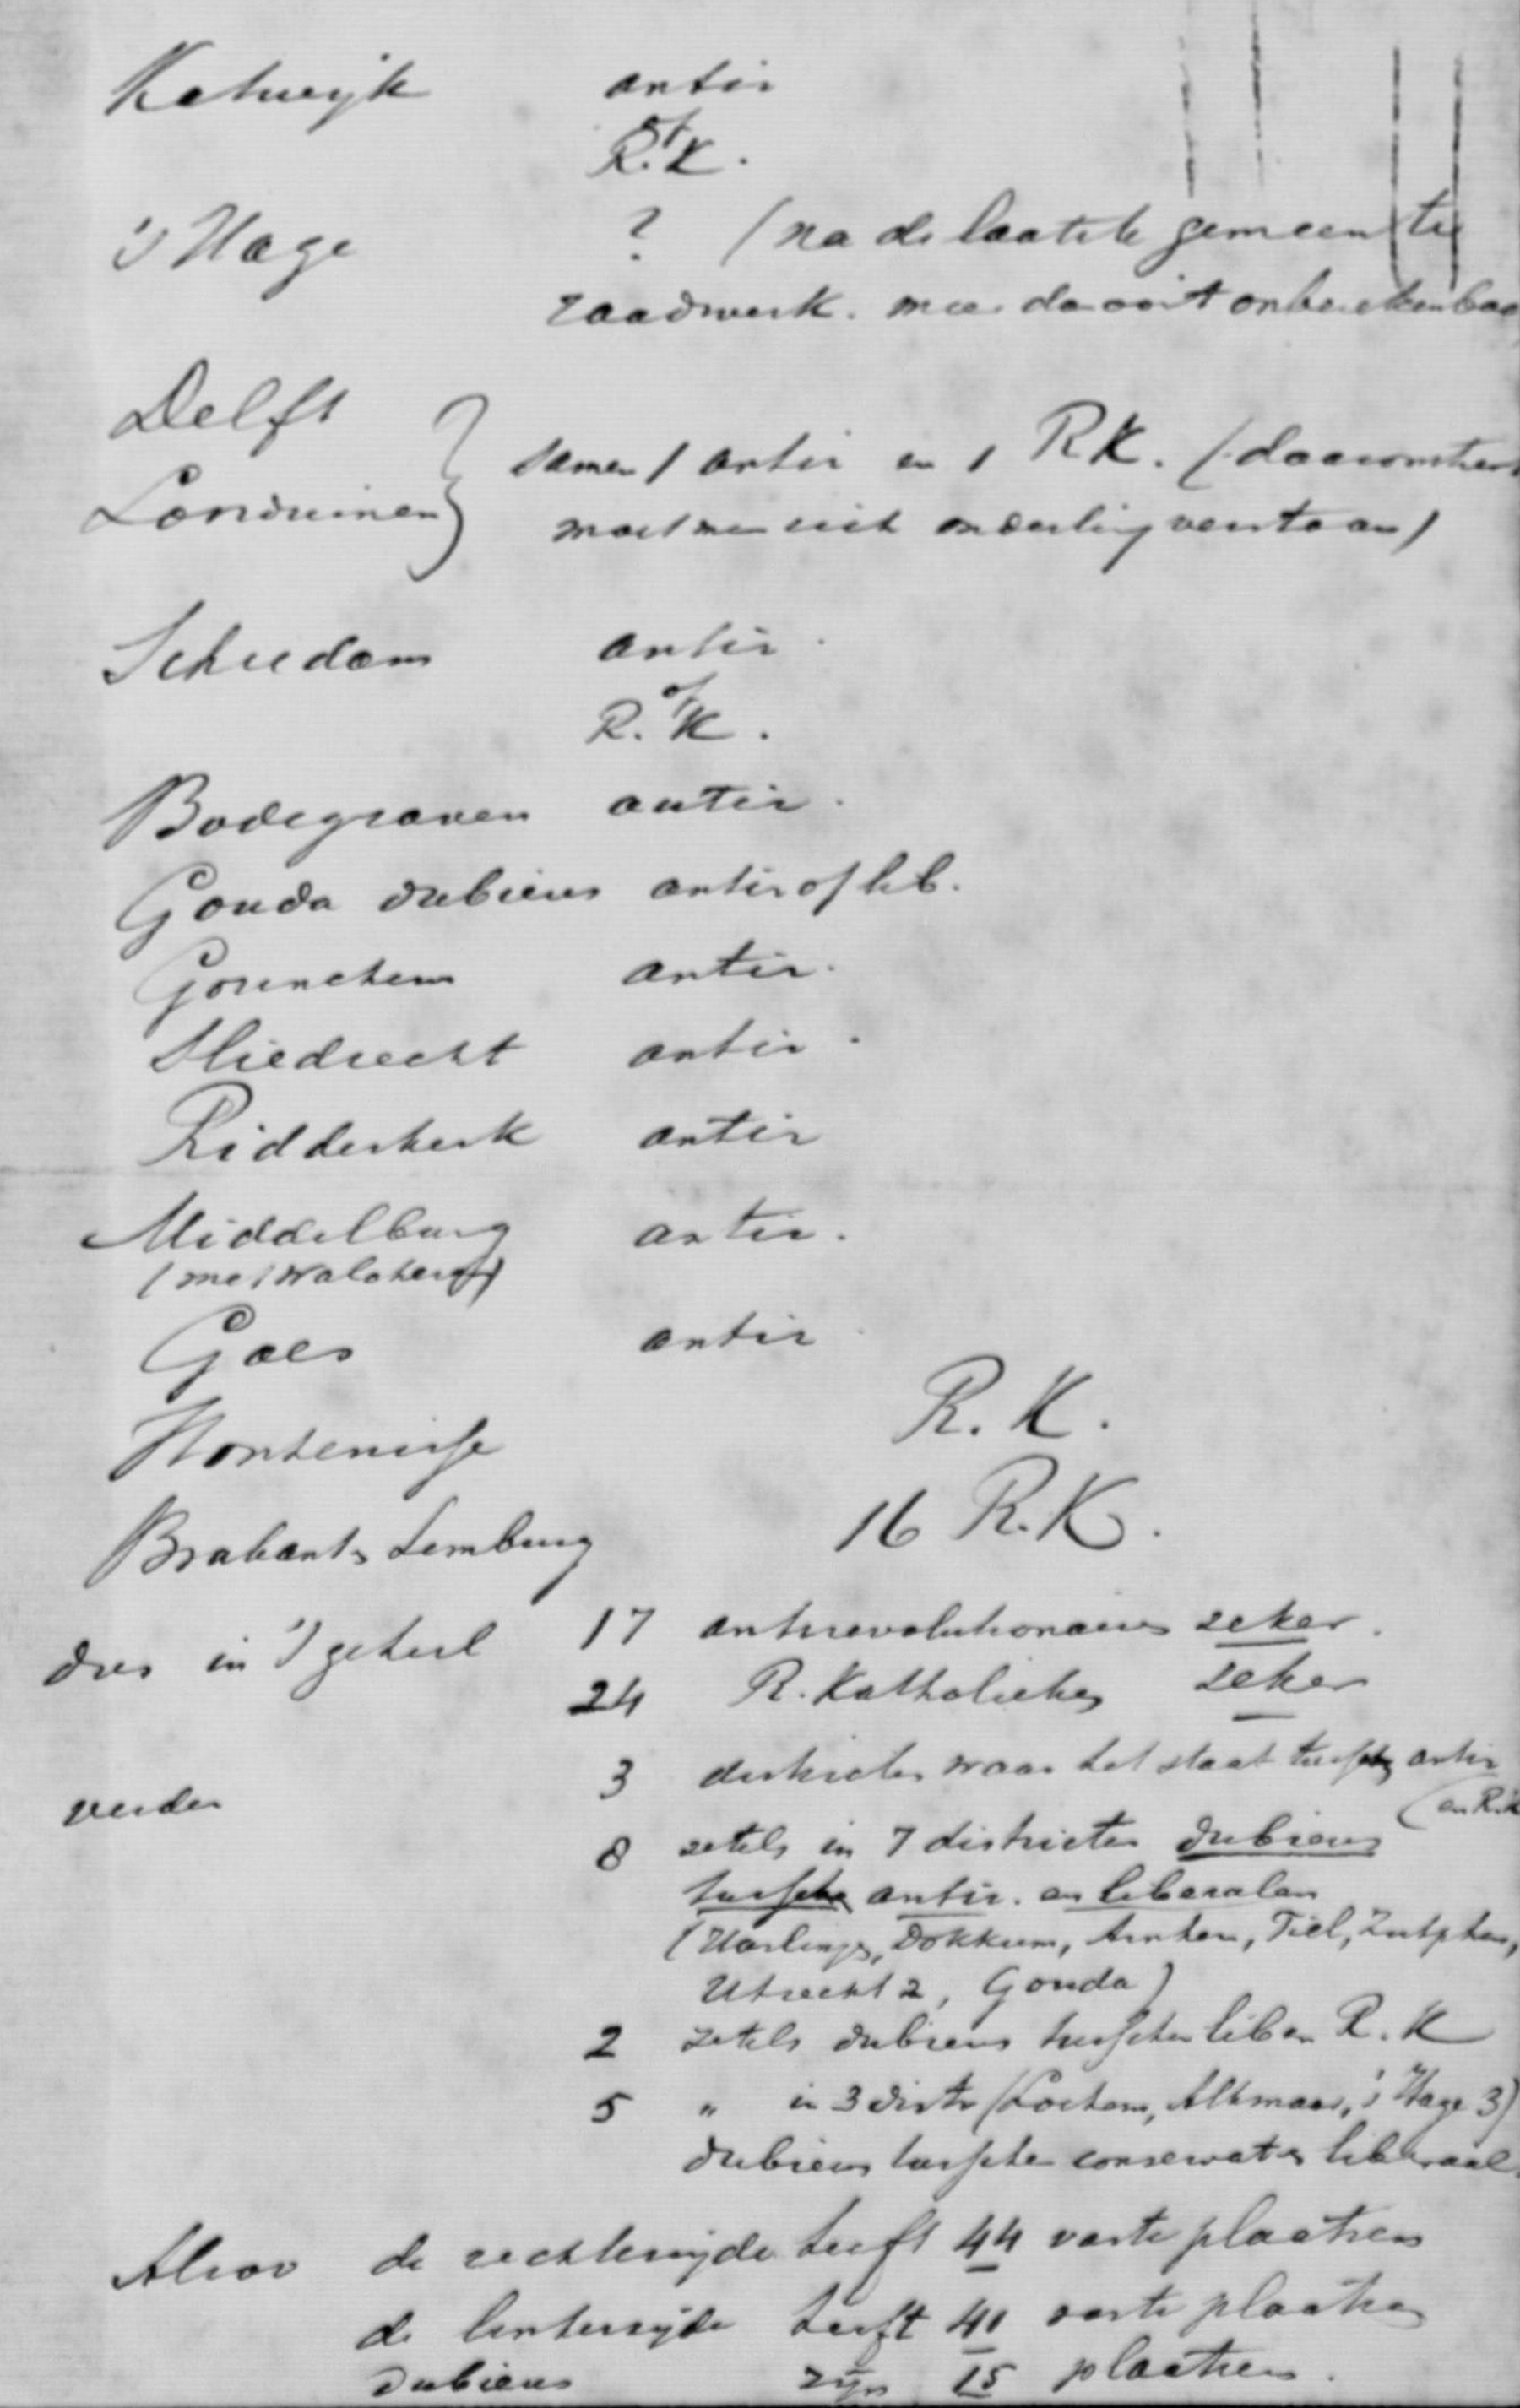 Katwijk antir
of
R.K.
's Hage ? (na de laatste gemeente
raadverk. meer dan ooit onberekenbaar
Delft
Londuinen } samen 1 antir en 1 RK. (daaromtrent
moet men zich onderling verstaan)
Schiedam antir.
of
R.K.
Bodegraven antir.
Gouda dubieus antir of lib.
Gorinchem antir.
Sliedrecht antir.
Ridderkerk antir
Middelburg antir.
(met Walcheren)
Goes antir
Hontenisse R.K.
Brabant & Limburg 16 R.K.
dus in 't geheel 17 antirevolutionairen zeker.
24 R. Katholieken zeker
verder 3 districten waar het staat tusschen antir
(en R.K
8 zetels in 7 districten dubieus
tusschen antir. en liberalen
(Harlingen, Dokkum, Arnhem, Tiel, Zutphen,
Utrecht 2, Gouda)
2 zetels dubieus tusschen lib en R.K
5 " in 3 distr (Lochem, Alkmaar, 's Hage 3)
dubieus tusschen conservat & liberaal.
Alzoo de rechterzijde heeft 44 vaste plaatsen
de linkerzijde heeft 41 vaste plaatsen
dubieus zijn 15 plaatsen.